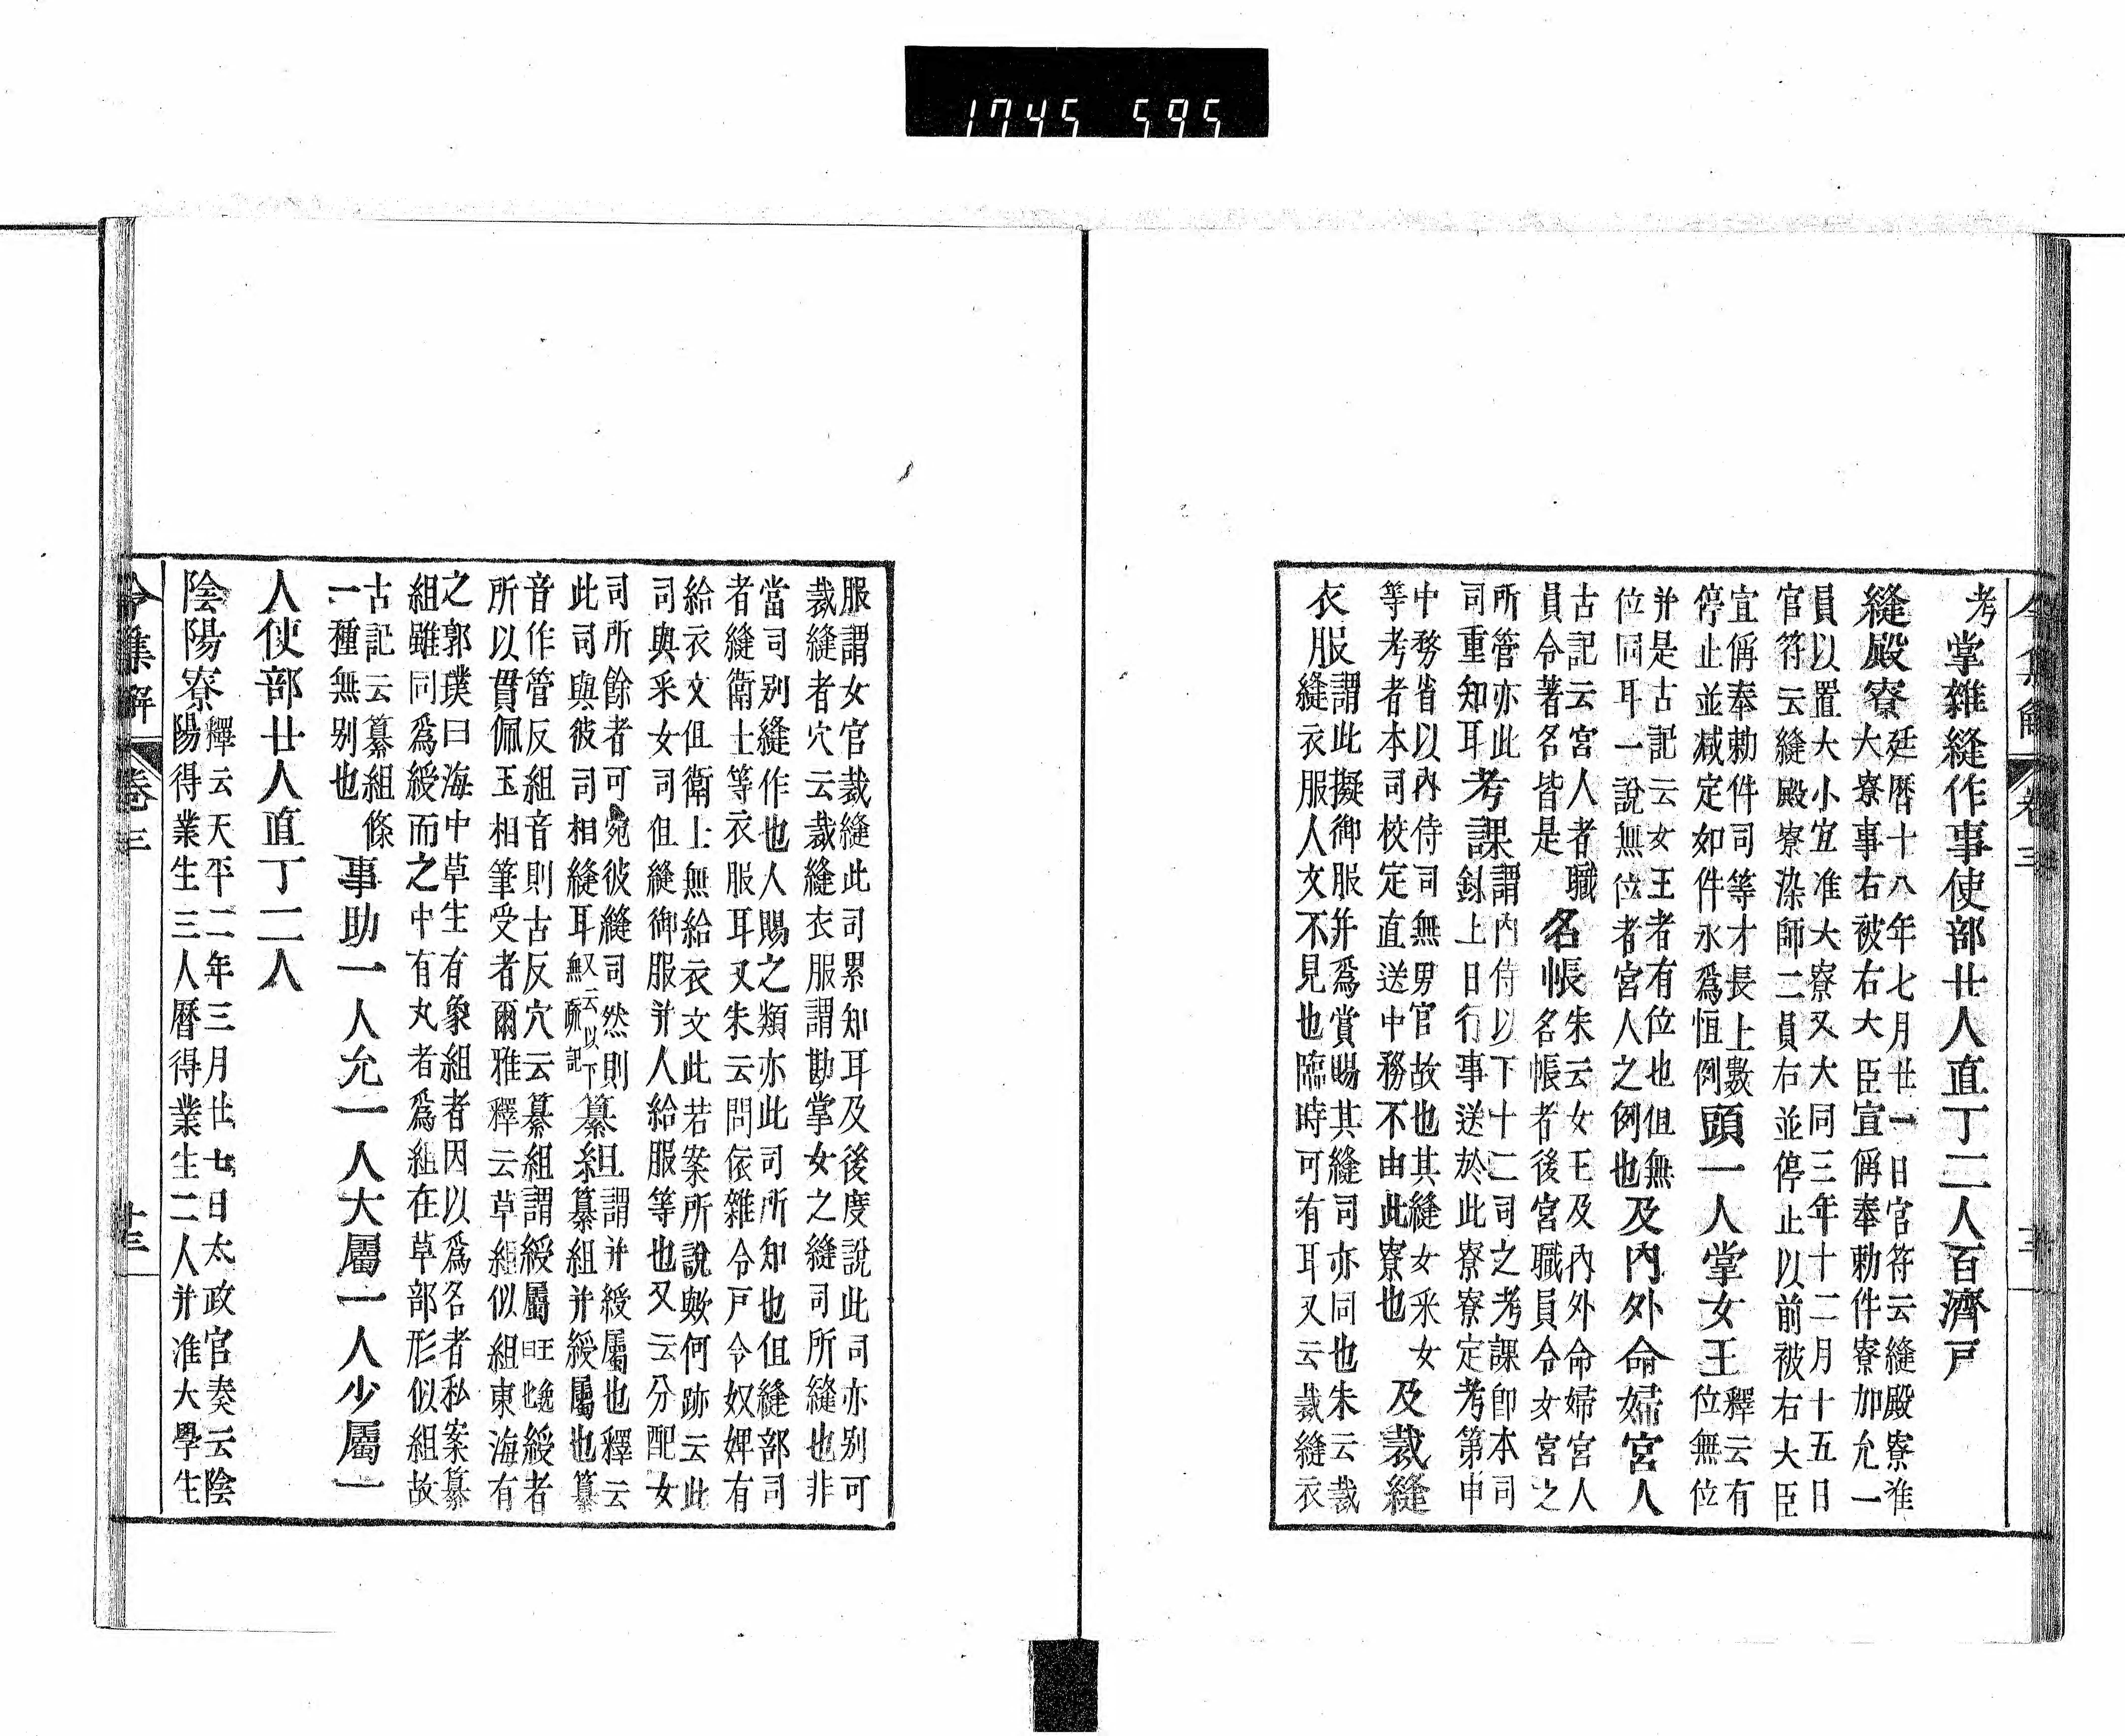 1745 595
令集解 卷三
考掌雜縫作事使部廿人直丁二人百濟戸
縫殿寮
廷暦十八年七月廿一日官符云縫殿寮准
大寮事右被右大臣宣偁奉勅件寮加允一
員以置大小宜准大寮又大同三年十二月十五日
官符云縫殿寮染師二員右並停止以前被右大臣
宜偁奉勅件司等才長上數
停止並減定如件永爲恒例
頭一人掌女王
釋云有
位無位
并是古記云女王者有位也但無
位同耳一說無位者宮人之例也
及內外命婦宮人
古記云宮人者職
員令著名皆是
名帳
朱云女王及內外命婦宮人
名帳者後宮職員令女宮之
所管亦此
司重知耳
考課
謂內侍以下十二司之考課即本司
錄上日行事送於此寮寮定考第申
中務省以內侍司無男官故也其縫女采女
等考者本司校定直送中務不由此寮也
及裁縫
衣服
謂此擬御服并爲賞賜其縫司亦同也朱云裁
縫衣服人文不見也臨時可有耳又云裁縫衣
服謂女官裁縫此司累知耳及後度說此司亦别可
裁縫者穴云裁縫衣服謂勘掌女之縫司所縫也非
當司别縫作也人賜之類亦此司所知也但縫部司
者縫衛士等衣服耳又朱云問依雜令戸令奴婢有
給衣文但衛士無給衣文此若案所說歟何跡云此
司與采女司但縫御服并人給服等也又云分配女
司所餘者可宛彼縫司然則
此司與彼司相縫耳
又云以下
無疏記
纂組
謂并綬屬也釋云
纂組并綬屬也纂
音作管反組音則古反穴云纂組謂綬屬
所以貫佩玉相筆受者爾雅釋云草組似組東海有
之郭璞曰海中草生有象組者因以爲名者私案纂
組雖同爲綬而之中有丸者爲組在草部形似組故
古記云纂組條
一種無别也
事助一人允一人大屬一人少屬一
人使部廿人直丁二人
陰陽寮
釋云天平二年三月廿七日太政官奏云陰
陽得業生三人曆得業生二人并准大學生
令集解 卷三 廿三